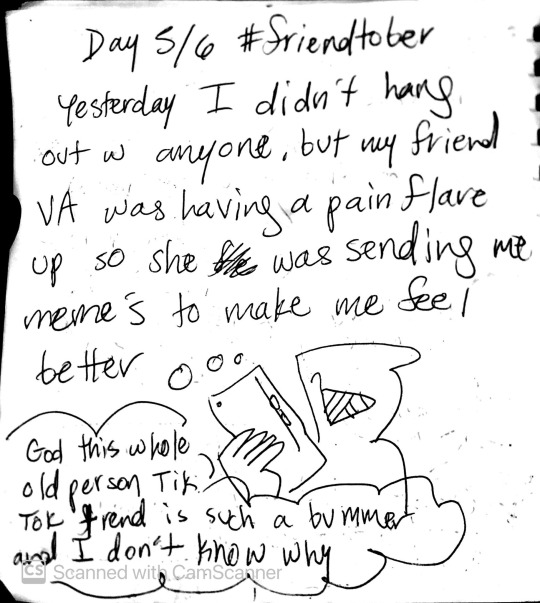 Day 5/6 #friendtober
Yesterday I didn't hang
out w anyone, but my friend
VA was having a pain flare
up so she was sending me
meme's to make me feel
better
God this whole
old person Tik
Tok trend is such a bummer
and I don't know why
CS Scanned with CamScanner